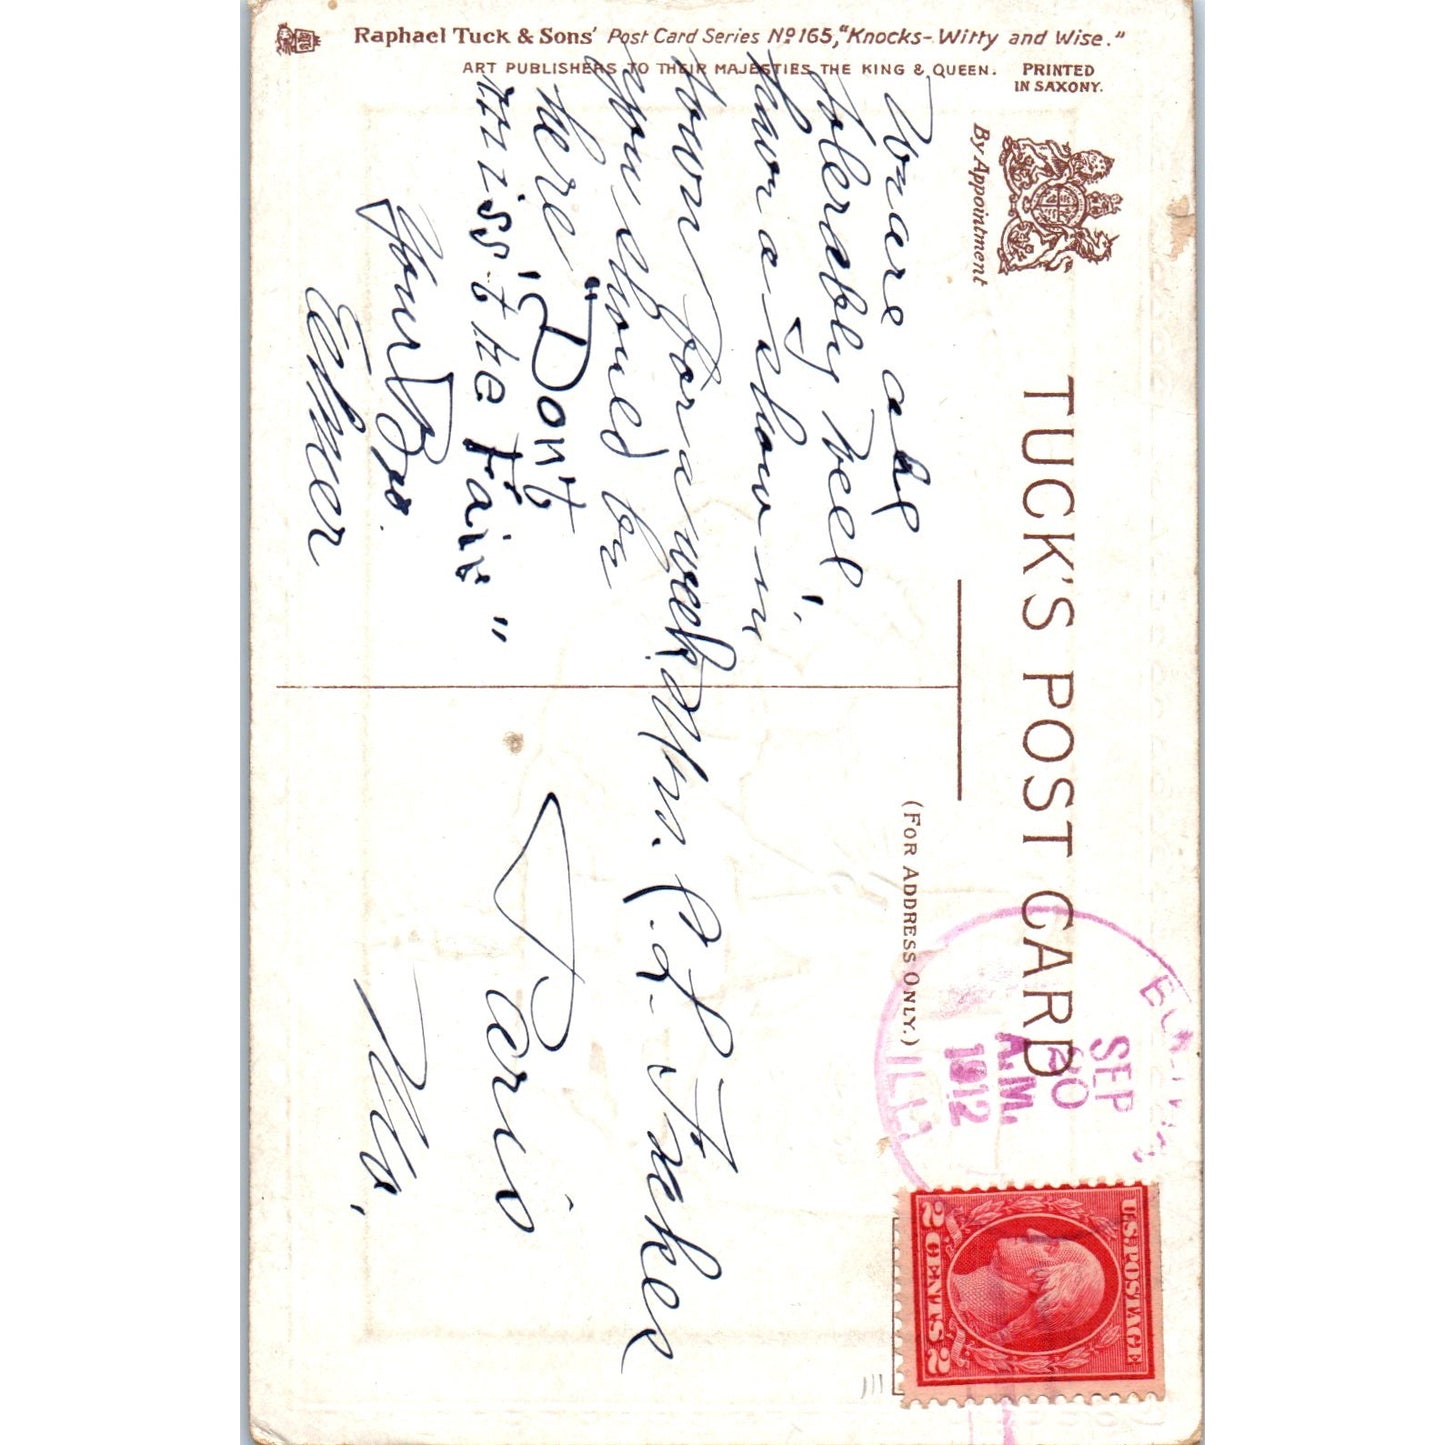 Raphael Tuck & Sons' Post Card Series No 165, "Knocks-Witty and Wise."
ART PUBLISHERS TO THEIR MAJESTIES THE KING & QUEEN. PRINTED
IN SAXONY.
By Appointment
TUCK'S POST CARD
(FOR ADDRESS ONLY.)
SEP
20
A.M.
1912
ILL
U.S. POSTAGE
2 CENTS 2
We are all
tolerably well,
have a show in
town for a week
you should be
here "Don't
miss the Fair"
Your Bro.
Elmer
Mrs. P. L. Fakes
Paris
Mo.